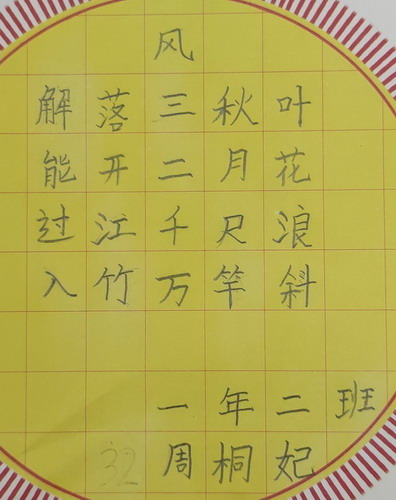 风
解落三秋叶
能开二月花
过江千尺浪
入竹万竿斜
一年二班
32 周桐妃